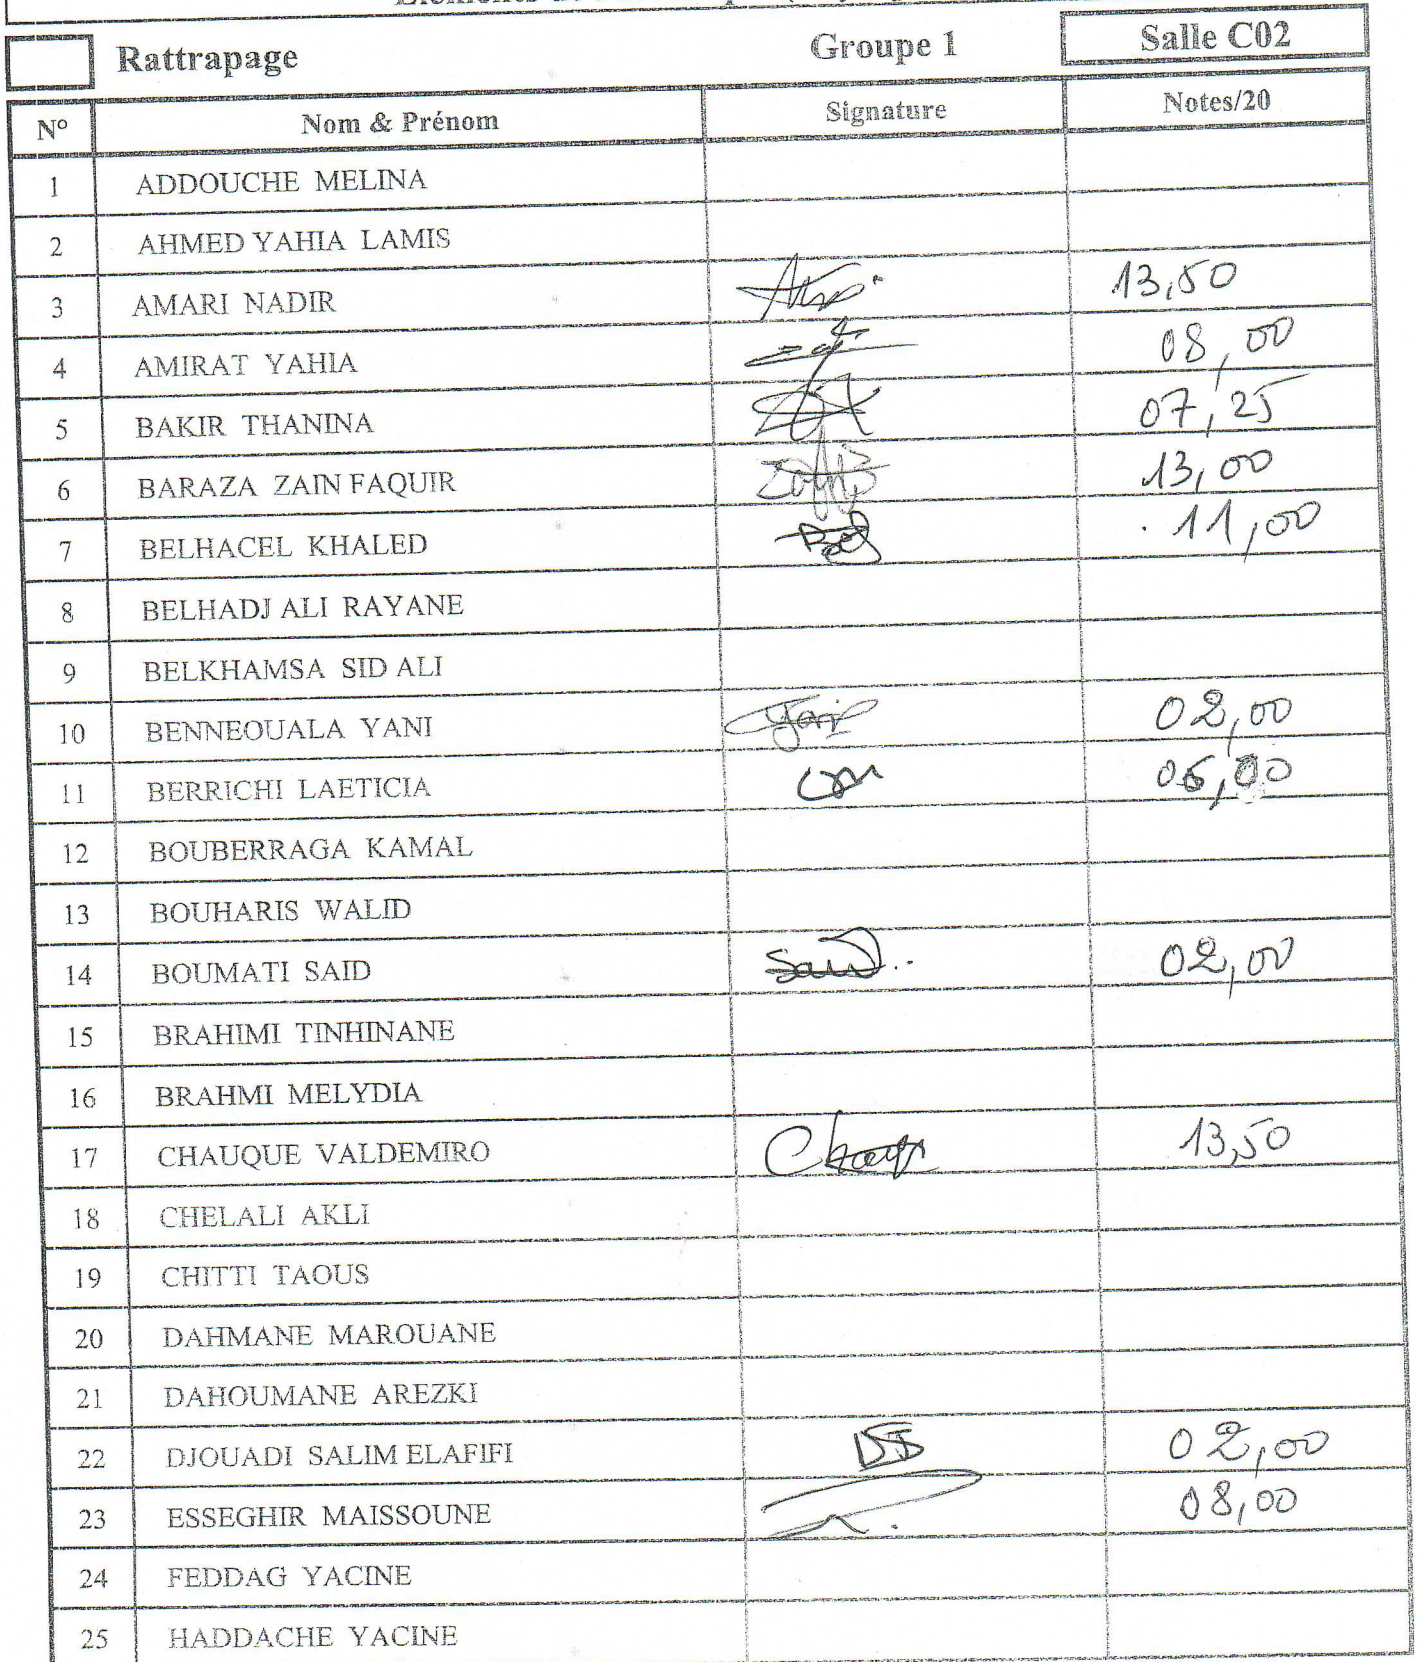 Rattrapage Groupe 1 Salle C02
N° Nom & Prénom Signature Notes/20
1 ADDOUCHE MELINA
2 AHMED YAHIA LAMIS
3 AMARI NADIR 13,50
4 AMIRAT YAHIA 08,00
5 BAKIR THANINA 07,25
6 BARAZA ZAIN FAQUIR 13,00
7 BELHACEL KHALED 11,00
8 BELHADJ ALI RAYANE
9 BELKHAMSA SID ALI
10 BENNEOUALA YANI Yani 02,00
11 BERRICHI LAETICIA
12 BOUBERRAGA KAMAL
13 BOUHARIS WALID
14 BOUMATI SAID Said 02,00
15 BRAHIMI TINHINANE
16 BRAHMI MELYDIA
17 CHAUQUE VALDEMIRO 13,50
18 CHELALI AKLI
19 CHITTI TAOUS
20 DAHMANE MAROUANE
21 DAHOUMANE AREZKI
22 DJOUADI SALIM ELAFIFI 02,00
23 ESSEGHIR MAISSOUNE 08,00
24 FEDDAG YACINE
25 HADDACHE YACINE